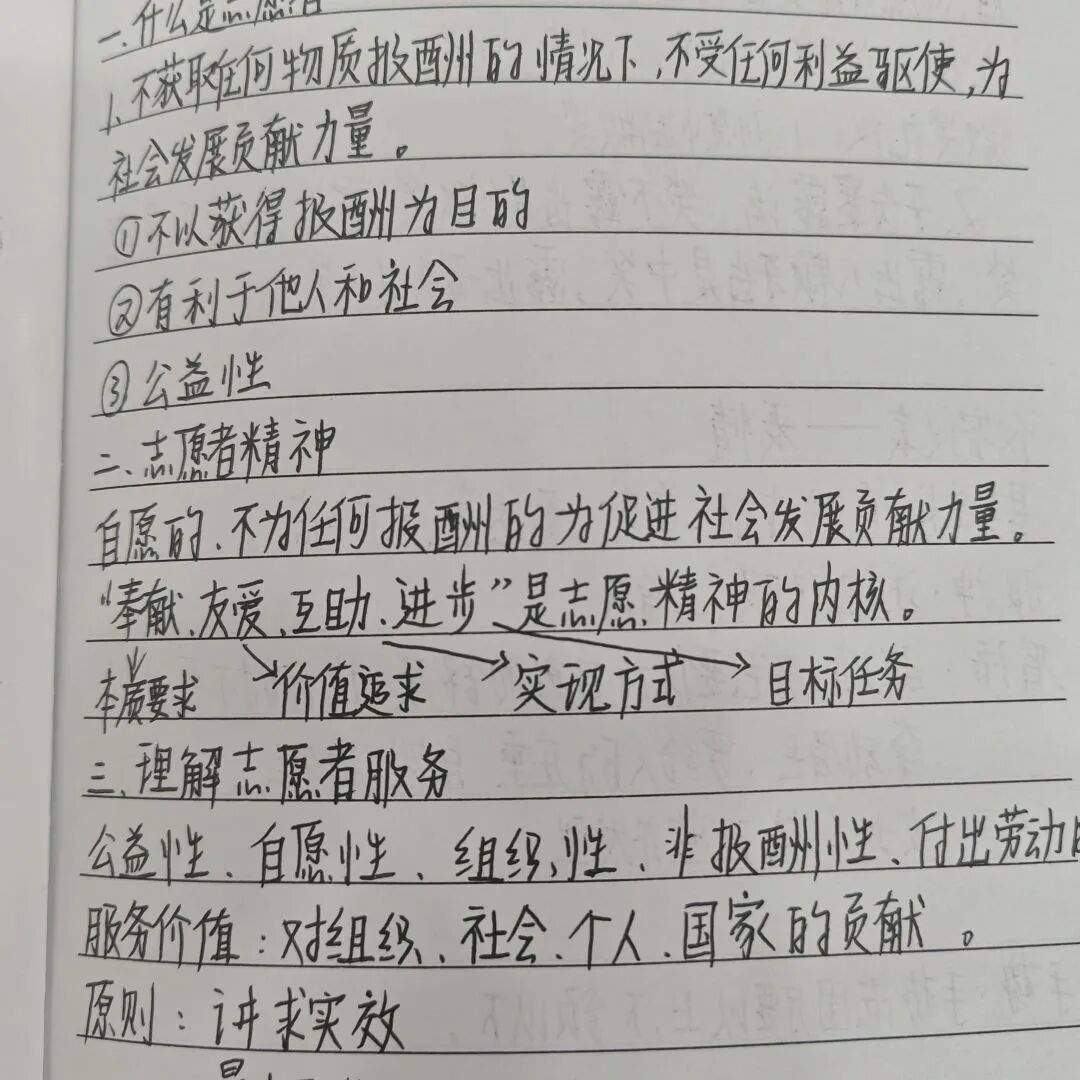 一.什么是志愿者
1.不获取任何物质报酬的情况下,不受任何利益驱使,为
社会发展贡献力量。
①不以获得报酬为目的
②有利于他人和社会
③公益性
二、志愿者精神
自愿的、不为任何报酬的为促进社会发展贡献力量。
“奉献、友爱、互助、进步”是志愿精神的内核。
本质要求 价值追求 实现方式 目标任务
三、理解志愿者服务
公益性、自愿性、组织性、非报酬性、付出劳动
服务价值:对组织、社会、个人、国家的贡献。
原则:讲求实效